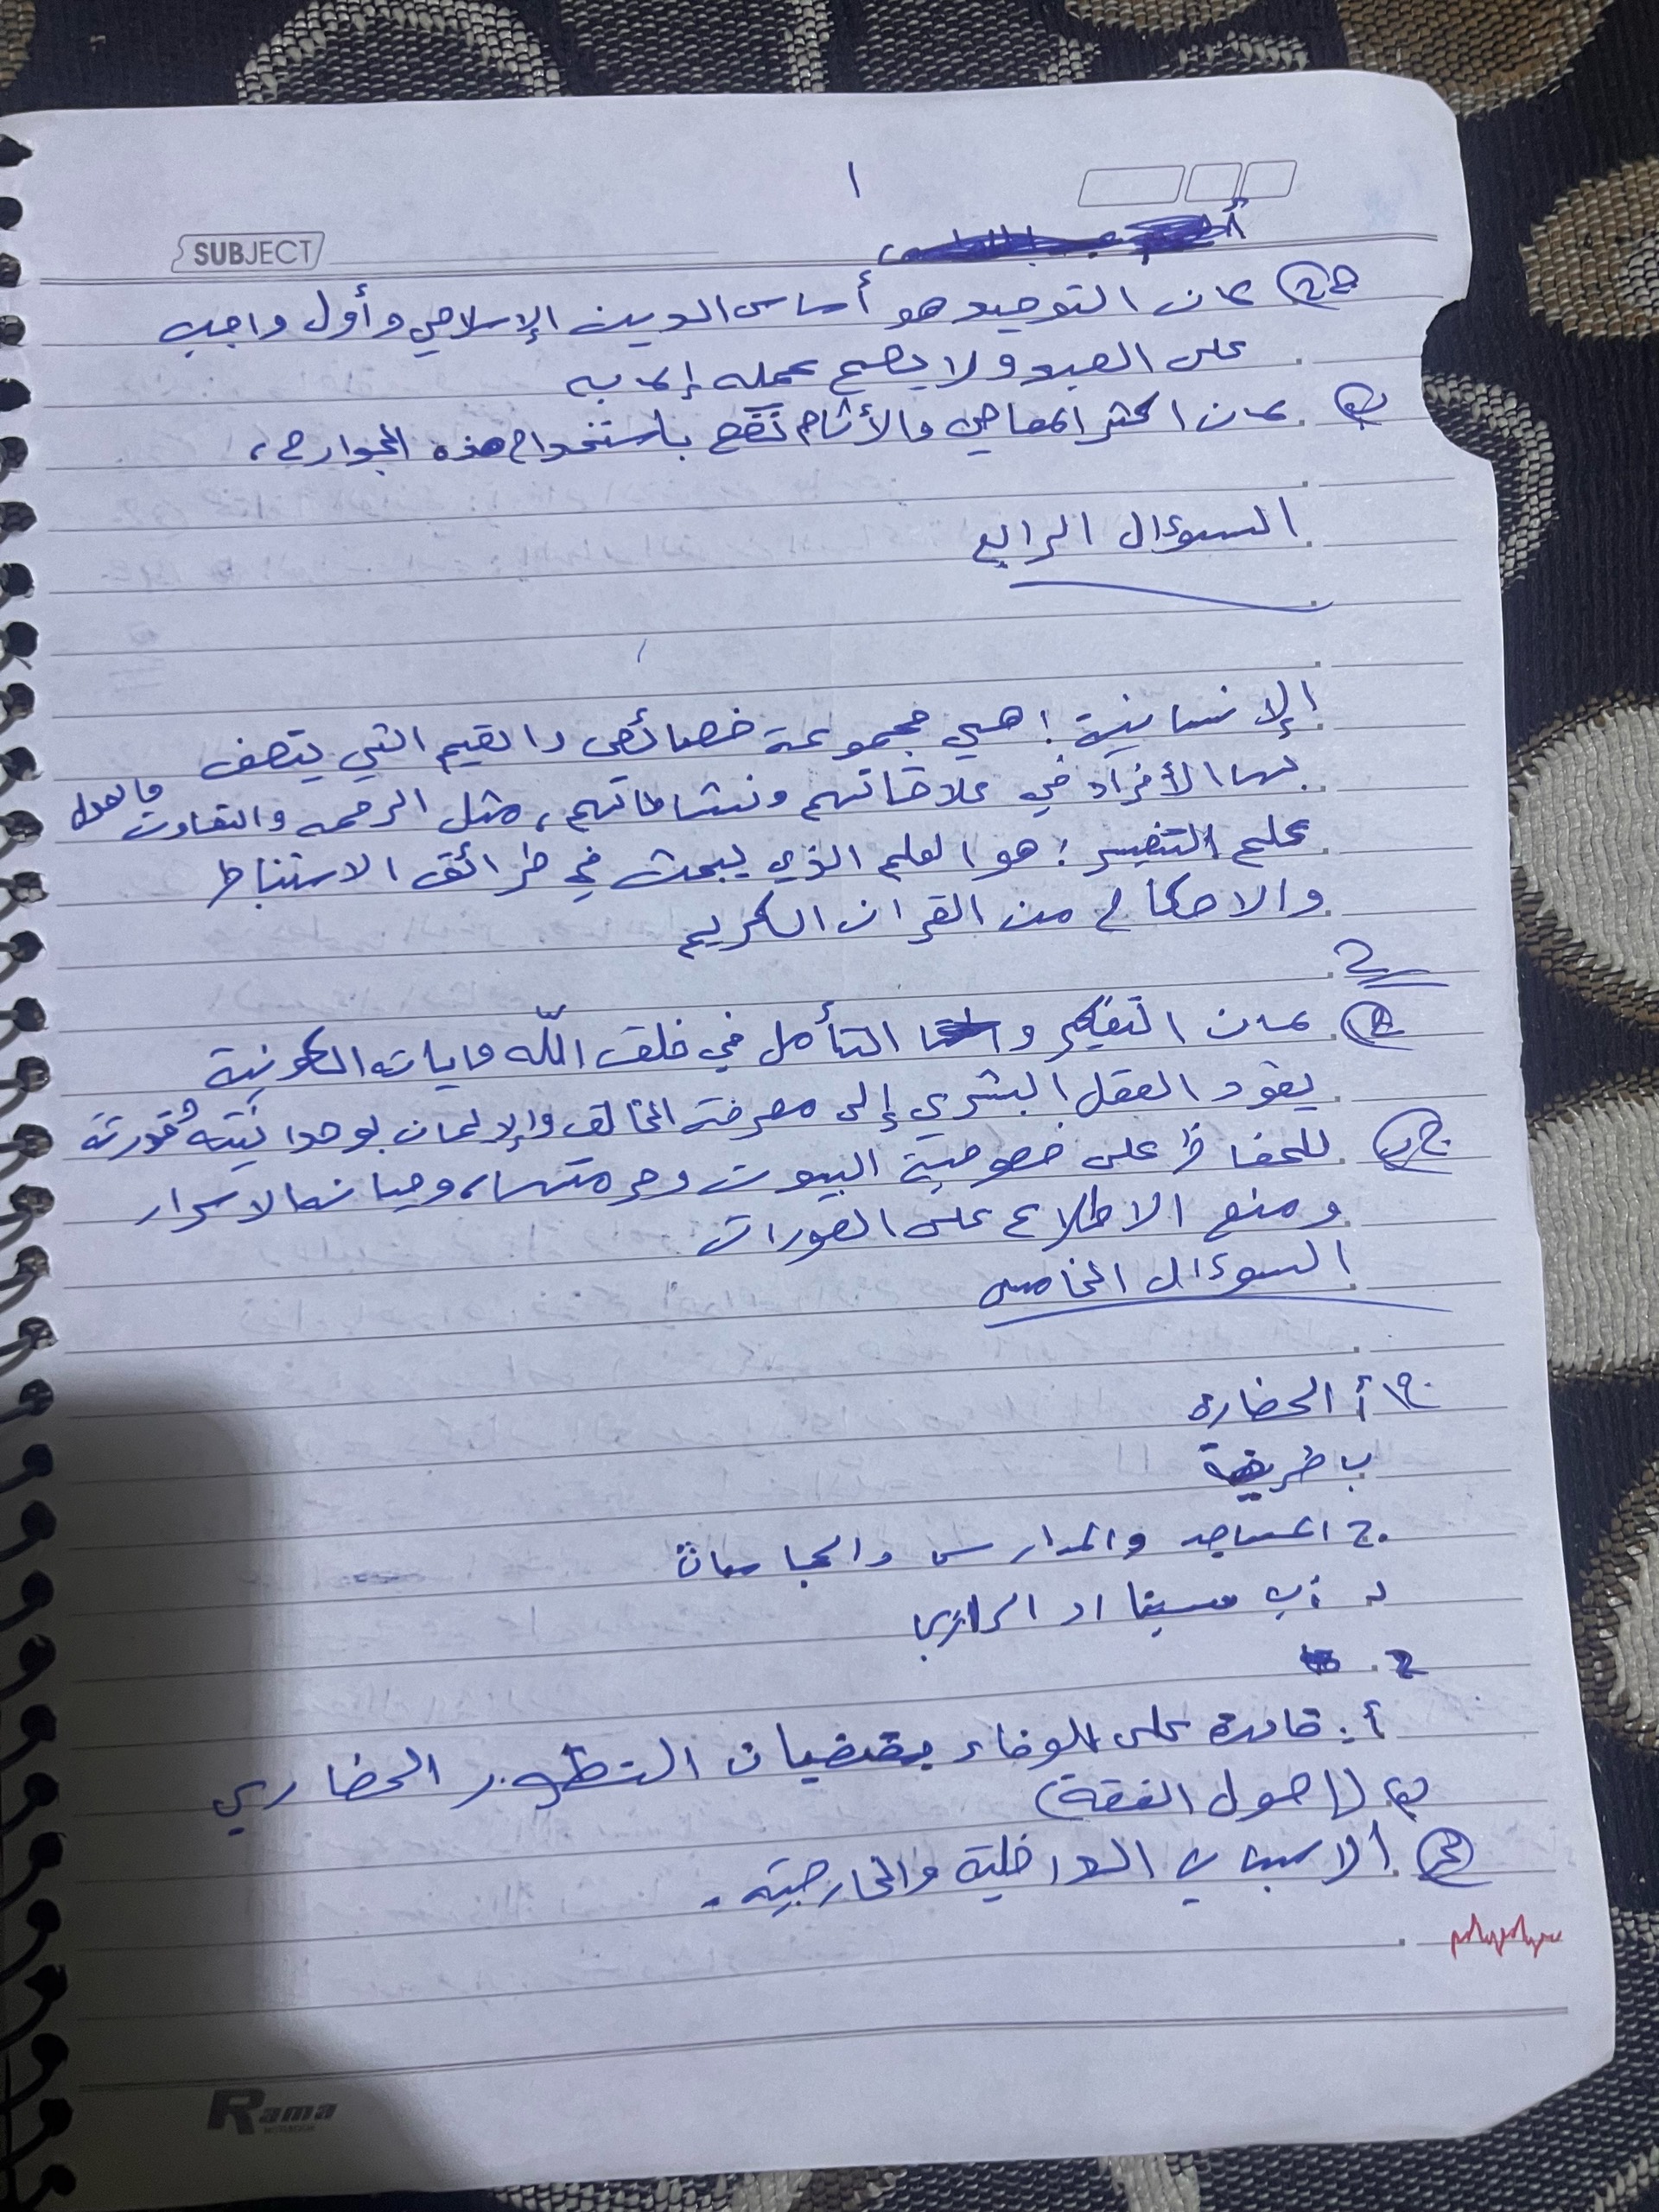 ١
SUBJECT
2 أ لان التوحيد هو أساس الدين الإسلامي وأول واجب
على العبد ولا يصح عمله إلا به
ب لان اكثر المعاصي والأثام تقع باستخدام هذه الجوارح،
السوءال الرابع
الإنسانية: هي مجموعة خصائص والقيم التي يتصف
بها الأفراد في علاقاتهم ونشاطاتهم، مثل الرحمه والتعاون والعدل
علم التفسير: هو العلم الذي يبحث في طرائق الاستنباط
والاحكام من القران الكريم
2
أ لان التفكير و التأمل في خلق الله وايات الكونية
يقود العقل البشري إلى معرفة الخالق والإيمان بوحدانيته وقدرته
ب للحفاظ على خصوصية البيوت وحرمتها، وصيانه الاسرار
ومنع الاطلاع على العورات
السوءال الخامس
1 أ الحضاره
ب طريقة
ج المساجد والمدارس والجامعات
د سينا او الرازي
2.
أ. قادرة على الوفاء بمقتضيات التطور الحضاري
ب (اصول الفقة)
ج الاسباب الداخلية والخارجية.
Rama